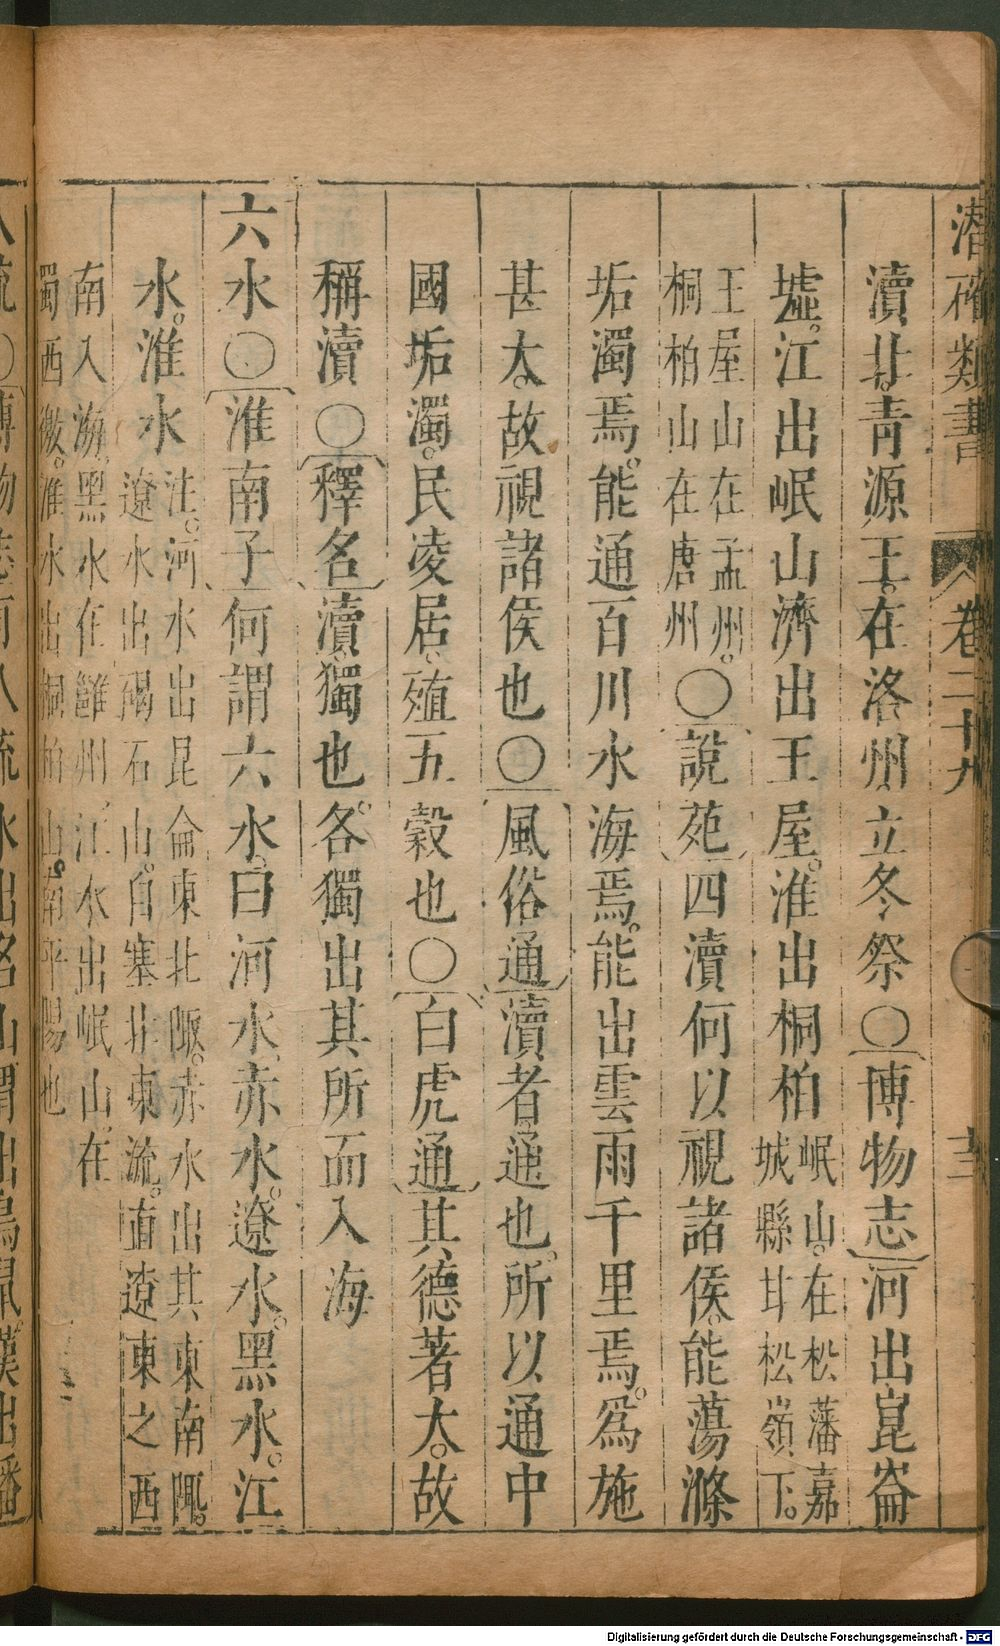 潛確類書 卷二十九 十三
瀆北青源王在洛州立冬祭○博物志河出崑崙
墟江出岷山濟出王屋淮出桐柏岷山在松藩嘉
城縣甘松嶺下
王屋山在孟州
桐柏山在唐州○說苑四瀆何以視諸侯能蕩滌
垢濁焉能通百川水海焉能出雲雨千里焉為施
甚大故視諸侯也○風俗通瀆者通也所以通中
國垢濁民凌居殖五穀也○白虎通其德著大故
稱瀆○釋名瀆獨也各獨出其所而入海
六水○淮南子何謂六水曰河水赤水遼水黑水江
水淮水注河水出昆侖東北陬赤水出其東南陬
遼水出碣石山自塞北東流直遼東之西
南入海黑水在雝州江水出岷山在
蜀西徼淮水出桐柏山南平陽也
八流○博物志有八流水出名山渭出鳥鼠漢出嶓
Digitalisierung gefördert durch die Deutsche Forschungsgemeinschaft - DFG